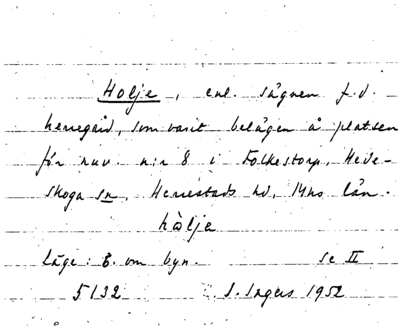 Holje, enl. sägnen f.d.
herregård, som varit belägen å platsen
för nuv. n:r 8 i Folkestorp, Hede-
skoga sn, Herrestads hd, Mhs län.
hålje
Läge: Ö. om byn. Se II
5132 I. Ingers 1952